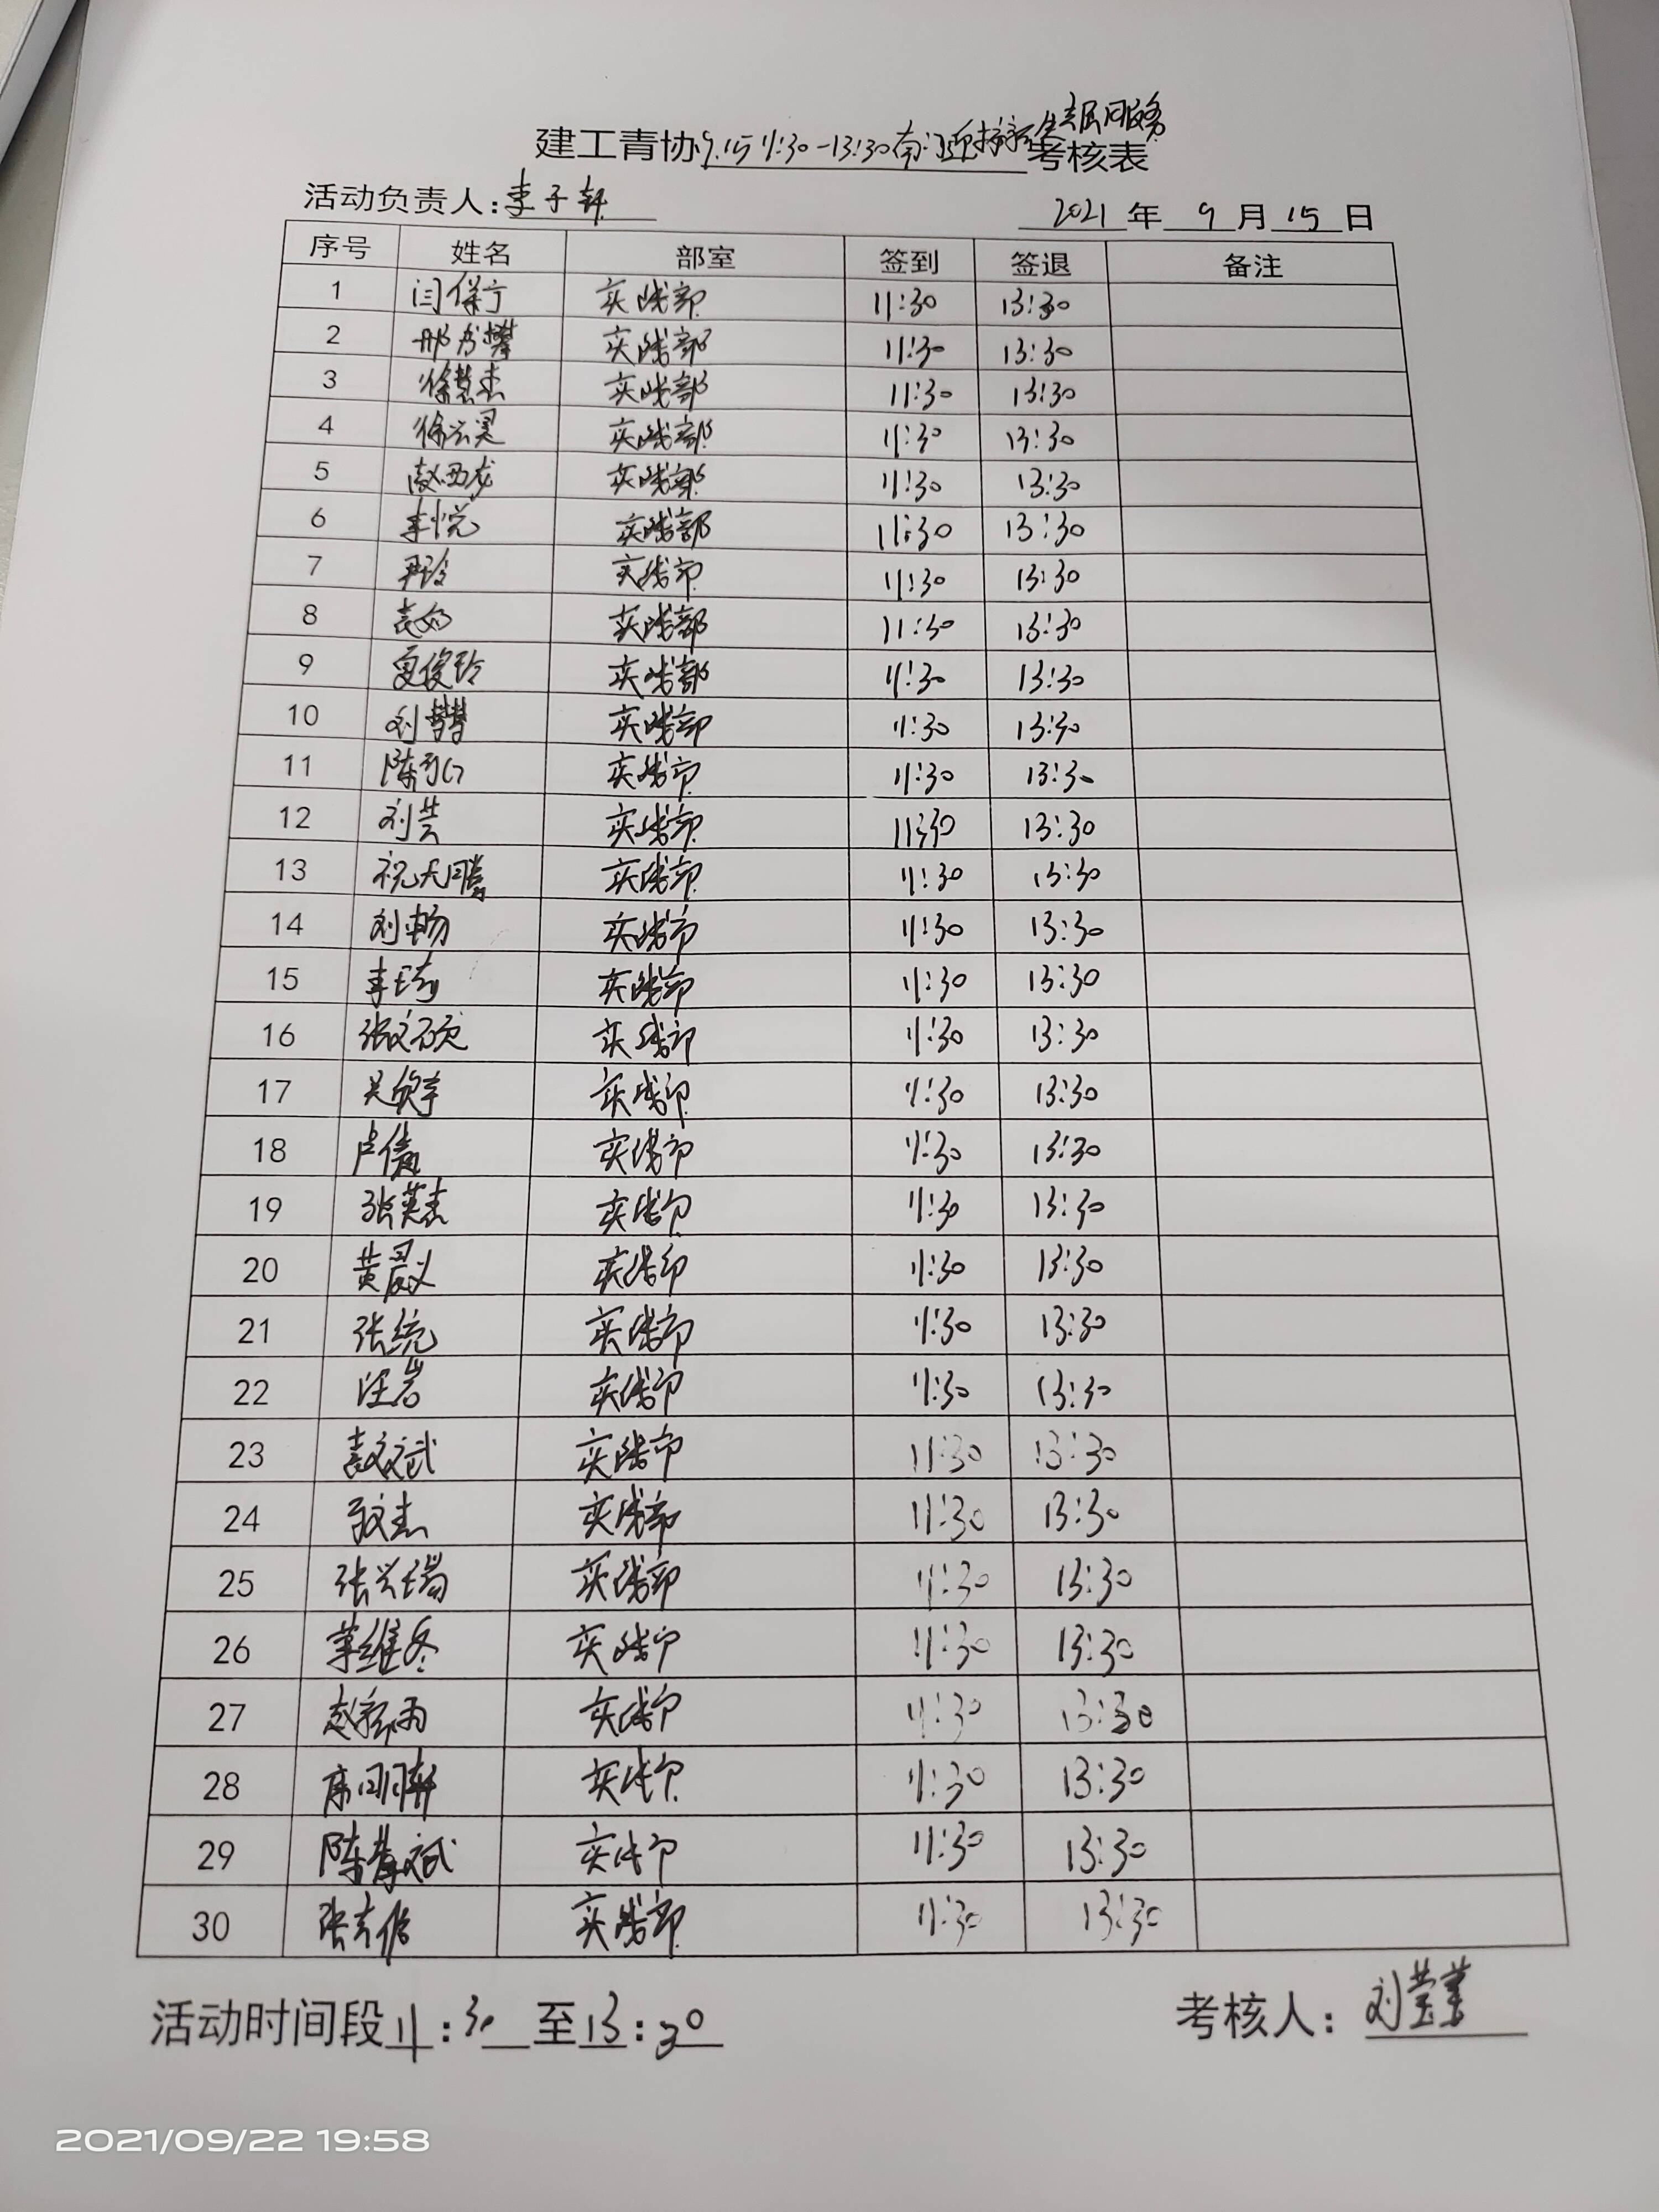 建工青协9.15 11:30-13:30南门迎接新生志愿服务考核表
活动负责人:李子轩 2021年9月15日
序号 姓名 部室 签到 签退 备注
1 闫保宁 实践部 11:30 13:30
2 邢书攀 实践部 11:30 13:30
3 徐慧杰 实践部 11:30 13:30
4 徐云昊 实践部 11:30 13:30
5 敖西龙 实践部 11:30 13:30
6 李悦 实践部 11:30 13:30
7 实践部 11:30 13:30
8 袁好 实践部 11:30 13:30
9 夏俊玲 实践部 11:30 13:30
10 刘梦梦 实践部 11:30 13:30
11 实践部 11:30 13:30
12 刘芸 实践部 11:30 13:30
13 祝天鹏 实践部 11:30 13:30
14 刘畅 实践部 11:30 13:30
15 李琦 实践部 11:30 13:30
16 张文硕 实践部 11:30 13:30
17 吴欣宇 实践部 11:30 13:30
18 卢倩 实践部 11:30 13:30
19 张英杰 实践部 11:30 13:30
20 黄晨义 实践部 11:30 13:30
21 张统 实践部 11:30 13:30
22 汪岩 实践部 11:30 13:30
23 实践部 11:30 13:30
24 实践部 11:30 13:30
25 张兴瑞 实践部 11:30 13:30
26 实践部 11:30 13:30
27 赵新雨 实践部 11:30 13:30
28 实践部 11:30 13:30
29 陈孝斌 实践部 11:30 13:30
30 实践部 11:30 13:30
活动时间段11:30至13:30 考核人:刘莹莹
2021/09/22 19:58